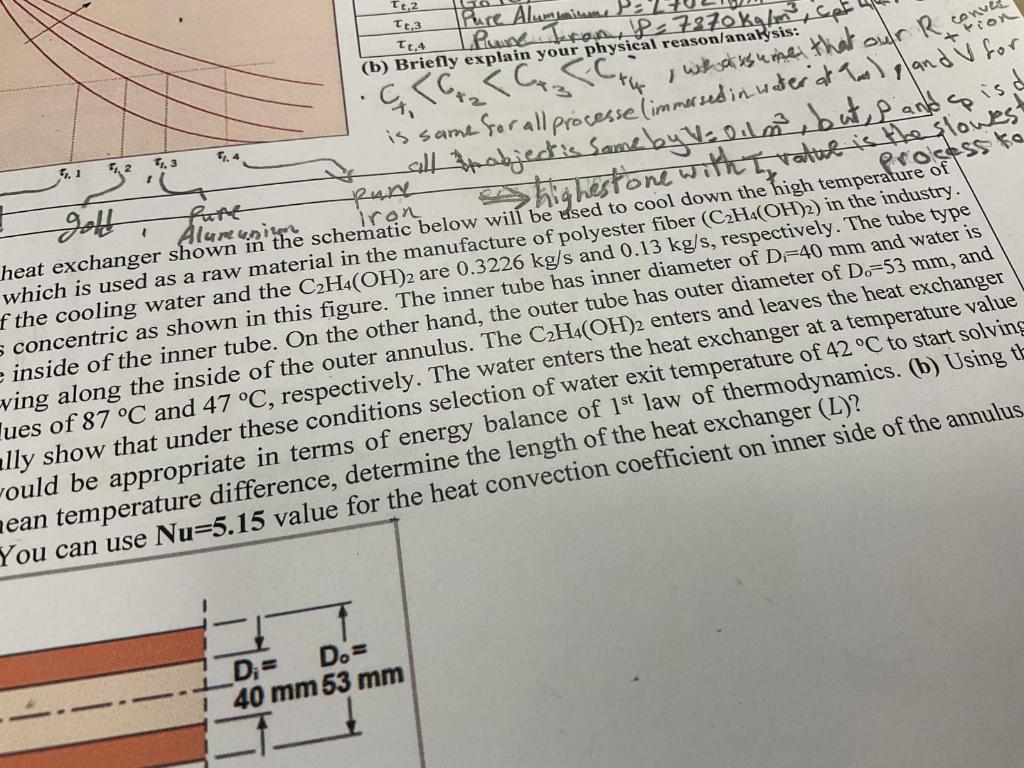 τt,2
τt,3 Pure Aluminium, ρ=2702 kg/m³
τt,4 Pure Iron, ρ=7870kg/m³, cp=
(b) Briefly explain your physical reason/analysis:
Cτ1 < Cτ2 < Cτ3 < Cτ4, we assumed that our R convection
is same for all processe (immersed in water at T∞), and V for
all object is same by V=0.1m³, but, ρ and cp is
highest one with τ value is the slowest
process to
τt,1 τt,2 τt,3 τt,4
gold, Pure Alumunium pure iron
heat exchanger shown in the schematic below will be used to cool down the high temperature of
which is used as a raw material in the manufacture of polyester fiber (C2H4(OH)2) in the industry.
f the cooling water and the C2H4(OH)2 are 0.3226 kg/s and 0.13 kg/s, respectively. The tube type
s concentric as shown in this figure. The inner tube has inner diameter of Di=40 mm and water is
e inside of the inner tube. On the other hand, the outer tube has outer diameter of Do=53 mm, and
wing along the inside of the outer annulus. The C2H4(OH)2 enters and leaves the heat exchanger
lues of 87 ºC and 47 ºC, respectively. The water enters the heat exchanger at a temperature value
ally show that under these conditions selection of water exit temperature of 42 ºC to start solving
ould be appropriate in terms of energy balance of 1st law of thermodynamics. (b) Using th
ean temperature difference, determine the length of the heat exchanger (L)?
You can use Nu=5.15 value for the heat convection coefficient on inner side of the annulus
Di= Do=
40 mm 53 mm